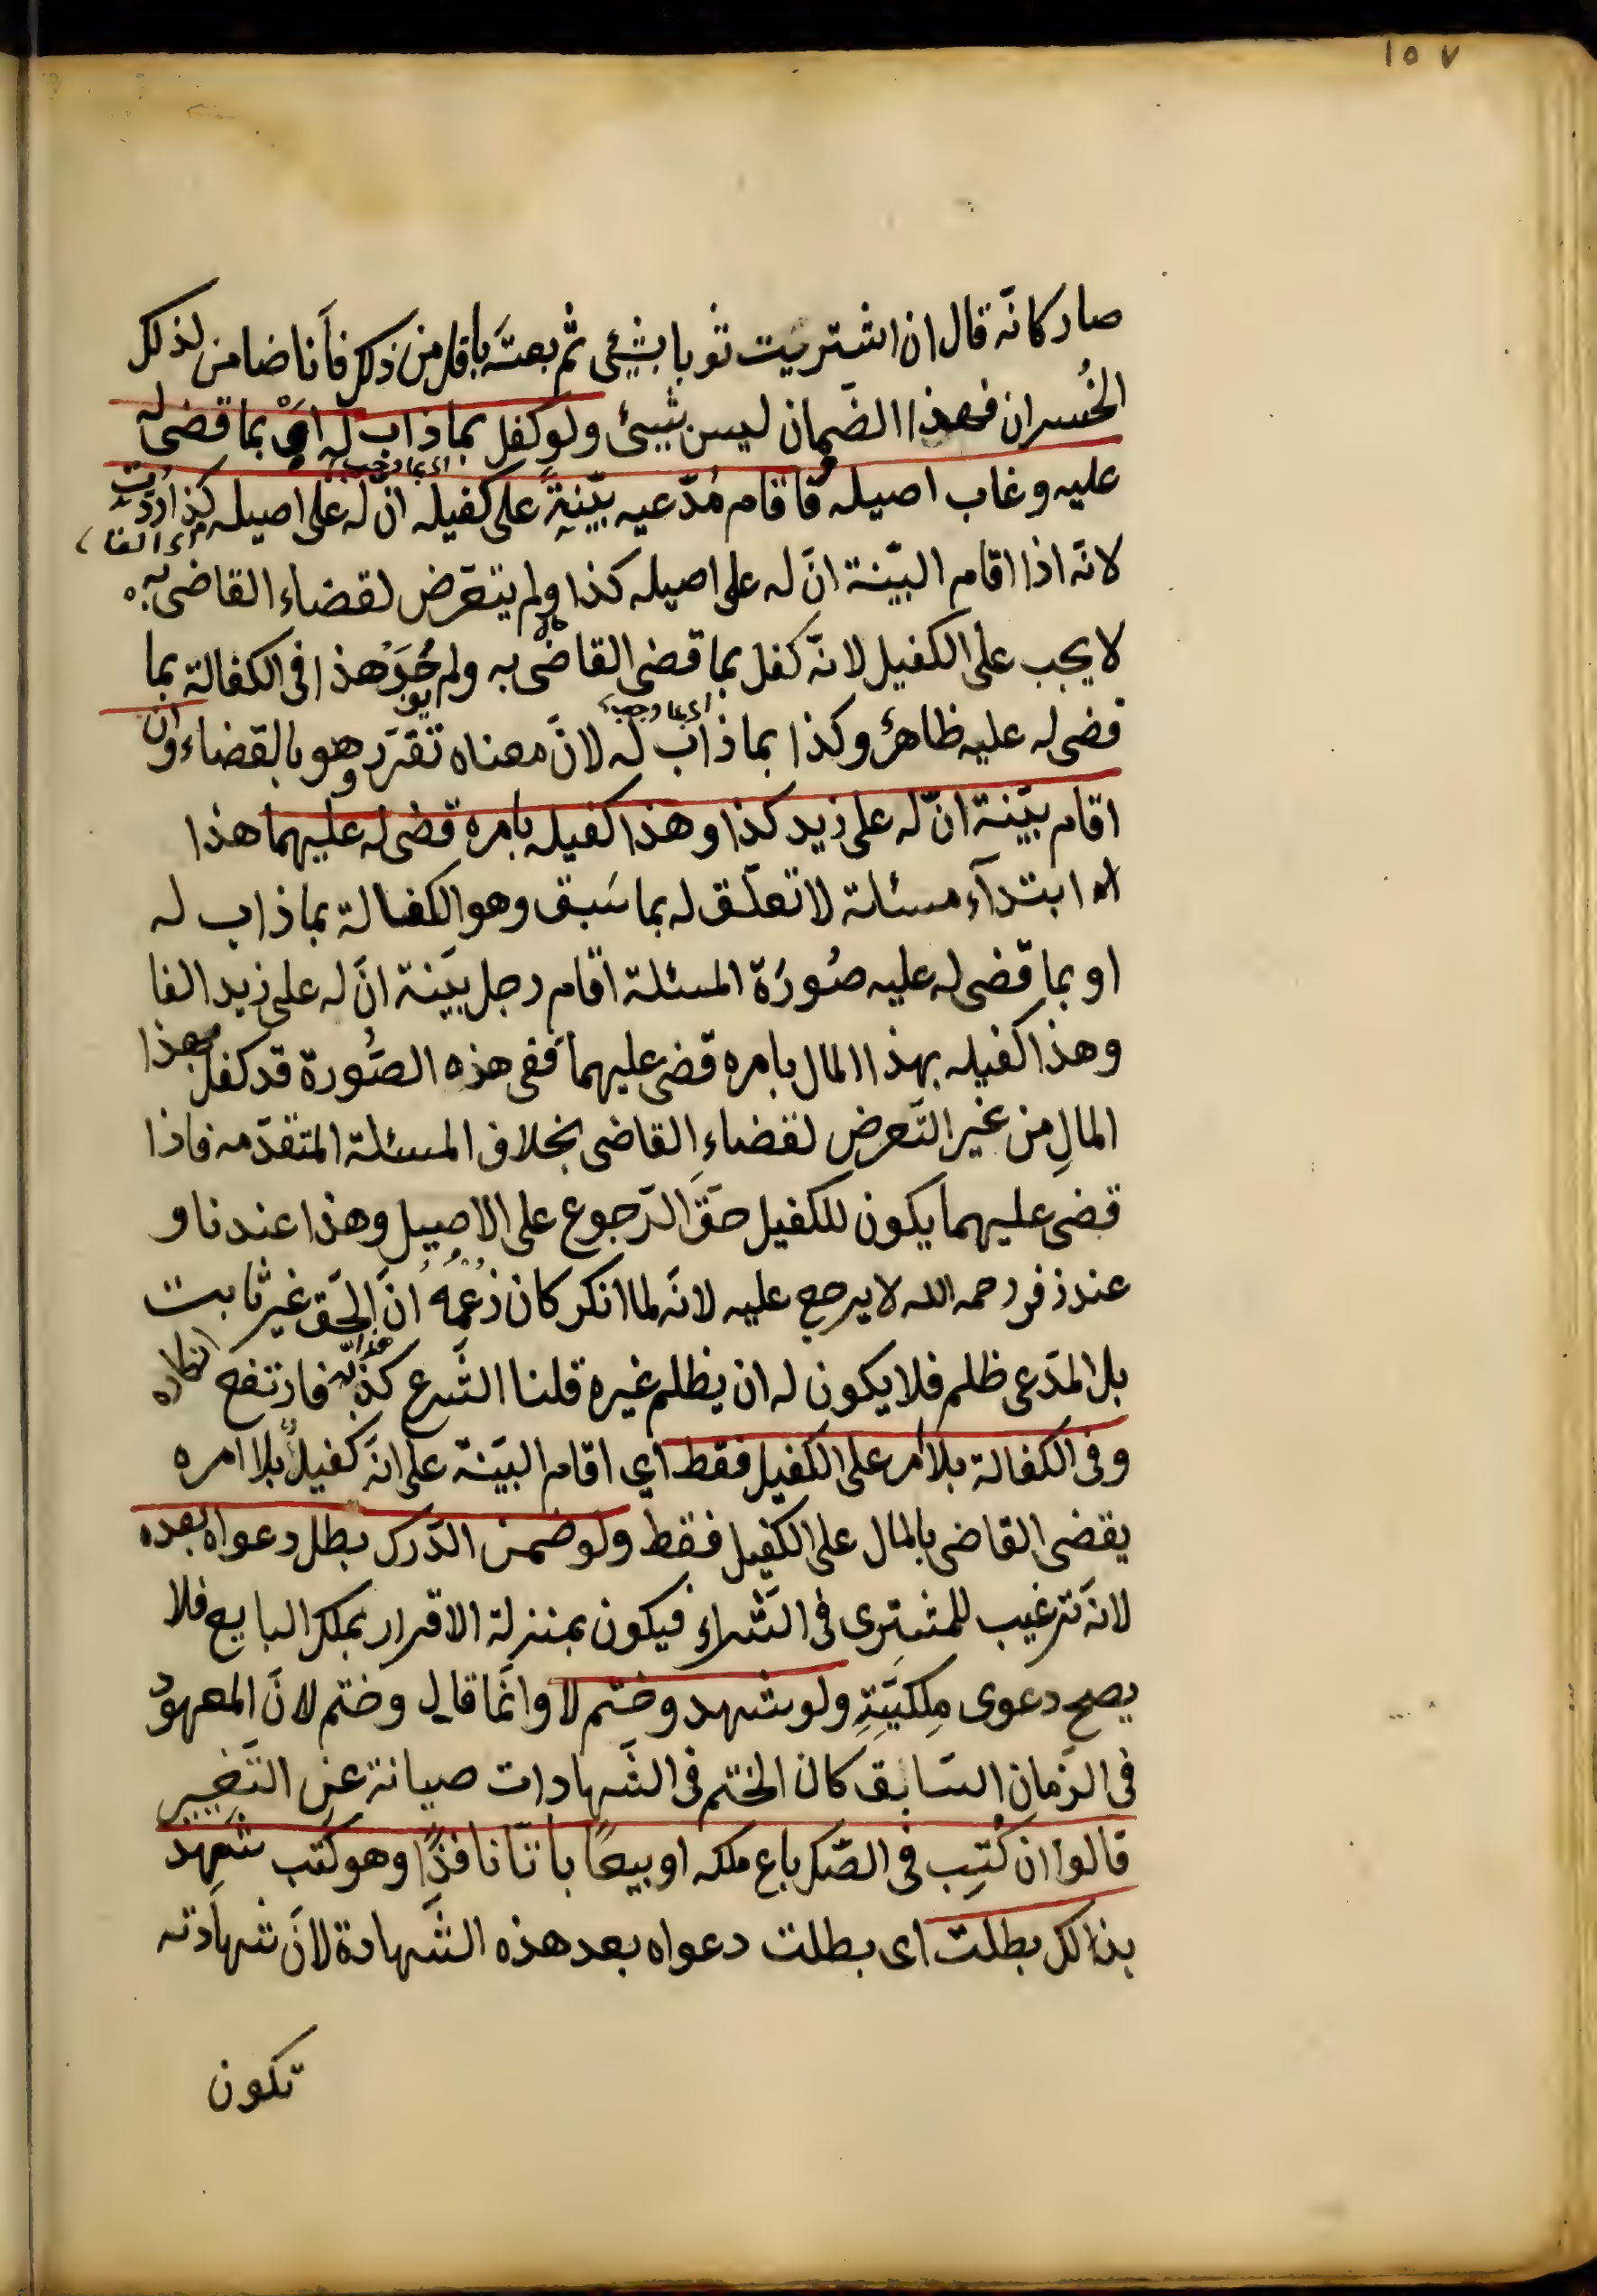 ١٥٧
صار كانّه قال ان اشتريت ثوبا بشئ ثم بعته باقل من ذلك فأنا ضامن لذلك
الخُسران فهذا الضّمان ليس بشئ ولو كفل بما ذاب له او بما قضى له
اى بما وجب
عليه وغاب اصيله فاقام مُدّعيه بيّنةً على كفيله انّ له على اصيله كذا رُدّت
اى الفا
لانّه اذا اقام البيّنة انّ له على اصيله كذا ولم يتعرّض لقضاء القاضى به
لا يجب على الكفيل لانّه كفل بما قضى القاضى به ولم يوجد هذا فى الكفالة بما
اى بما وجب
قضى له عليه ظاهرٌ وكذا بما ذاب له لانّ معناه تقرّر وهو بالقضاء وان
اقام بيّنة انّ له على زيد كذا وهذا كفيله بامره قضى له عليهما هذا
ابتدآء مسئلة لا تعلّق له بما سَبق وهو الكفالة بما ذاب له
او بما قضى له عليه صُورَة المسئلة اقام رجل بيّنة انّ له على زيد الفا
وهذا كفيله بهذا المال بامره قضى عليهما ففى هذه الصُّورة قد كفل بهذا
المالِ من غير التّعرض لقضاءِ القاضى بخلاف المسئلة المتقدّمه فاذا
قضى عليهما يكون للكفيل حقّ الرّجوع على الاصيل وهذا عندنا و
عند زفر رحمه الله لا يرجع عليه لانّه لما انكر كان زعمه انّ الحقّ غير ثابت
بل المدّعى ظلم فلا يكون له ان يظلم غيره قلنا الشّرع كذّبه فارتفع انكاره
وفى الكفالة بلا امر على الكفيل فقط اى اقام البيّنة على انّه كفيلٌ بلا امره
يقضى القاضى بالمال على الكفيل فقط ولو ضمن الدّرك بطل دعواه بعده
لانّه ترغيب للمشترى فى الشّراء فيكون بمنزلة الاقرار بملك البايع فلا
يصح دعوى مِلكيّتِهِ ولو شهد وختم لا وانّما قال وختم لانّ المعهود
فى الزّمان السّابق كان الختم فى الشّهادات صيانة عن التّغيير
قالوا ان كُتِب فى الصّك باع ملكه او بيعًا باتّا نافذًا وهو كتب شهد
بذالك بطلت اى بطلت دعواه بعد هذه الشّهادة لانّ شهادته
تكون